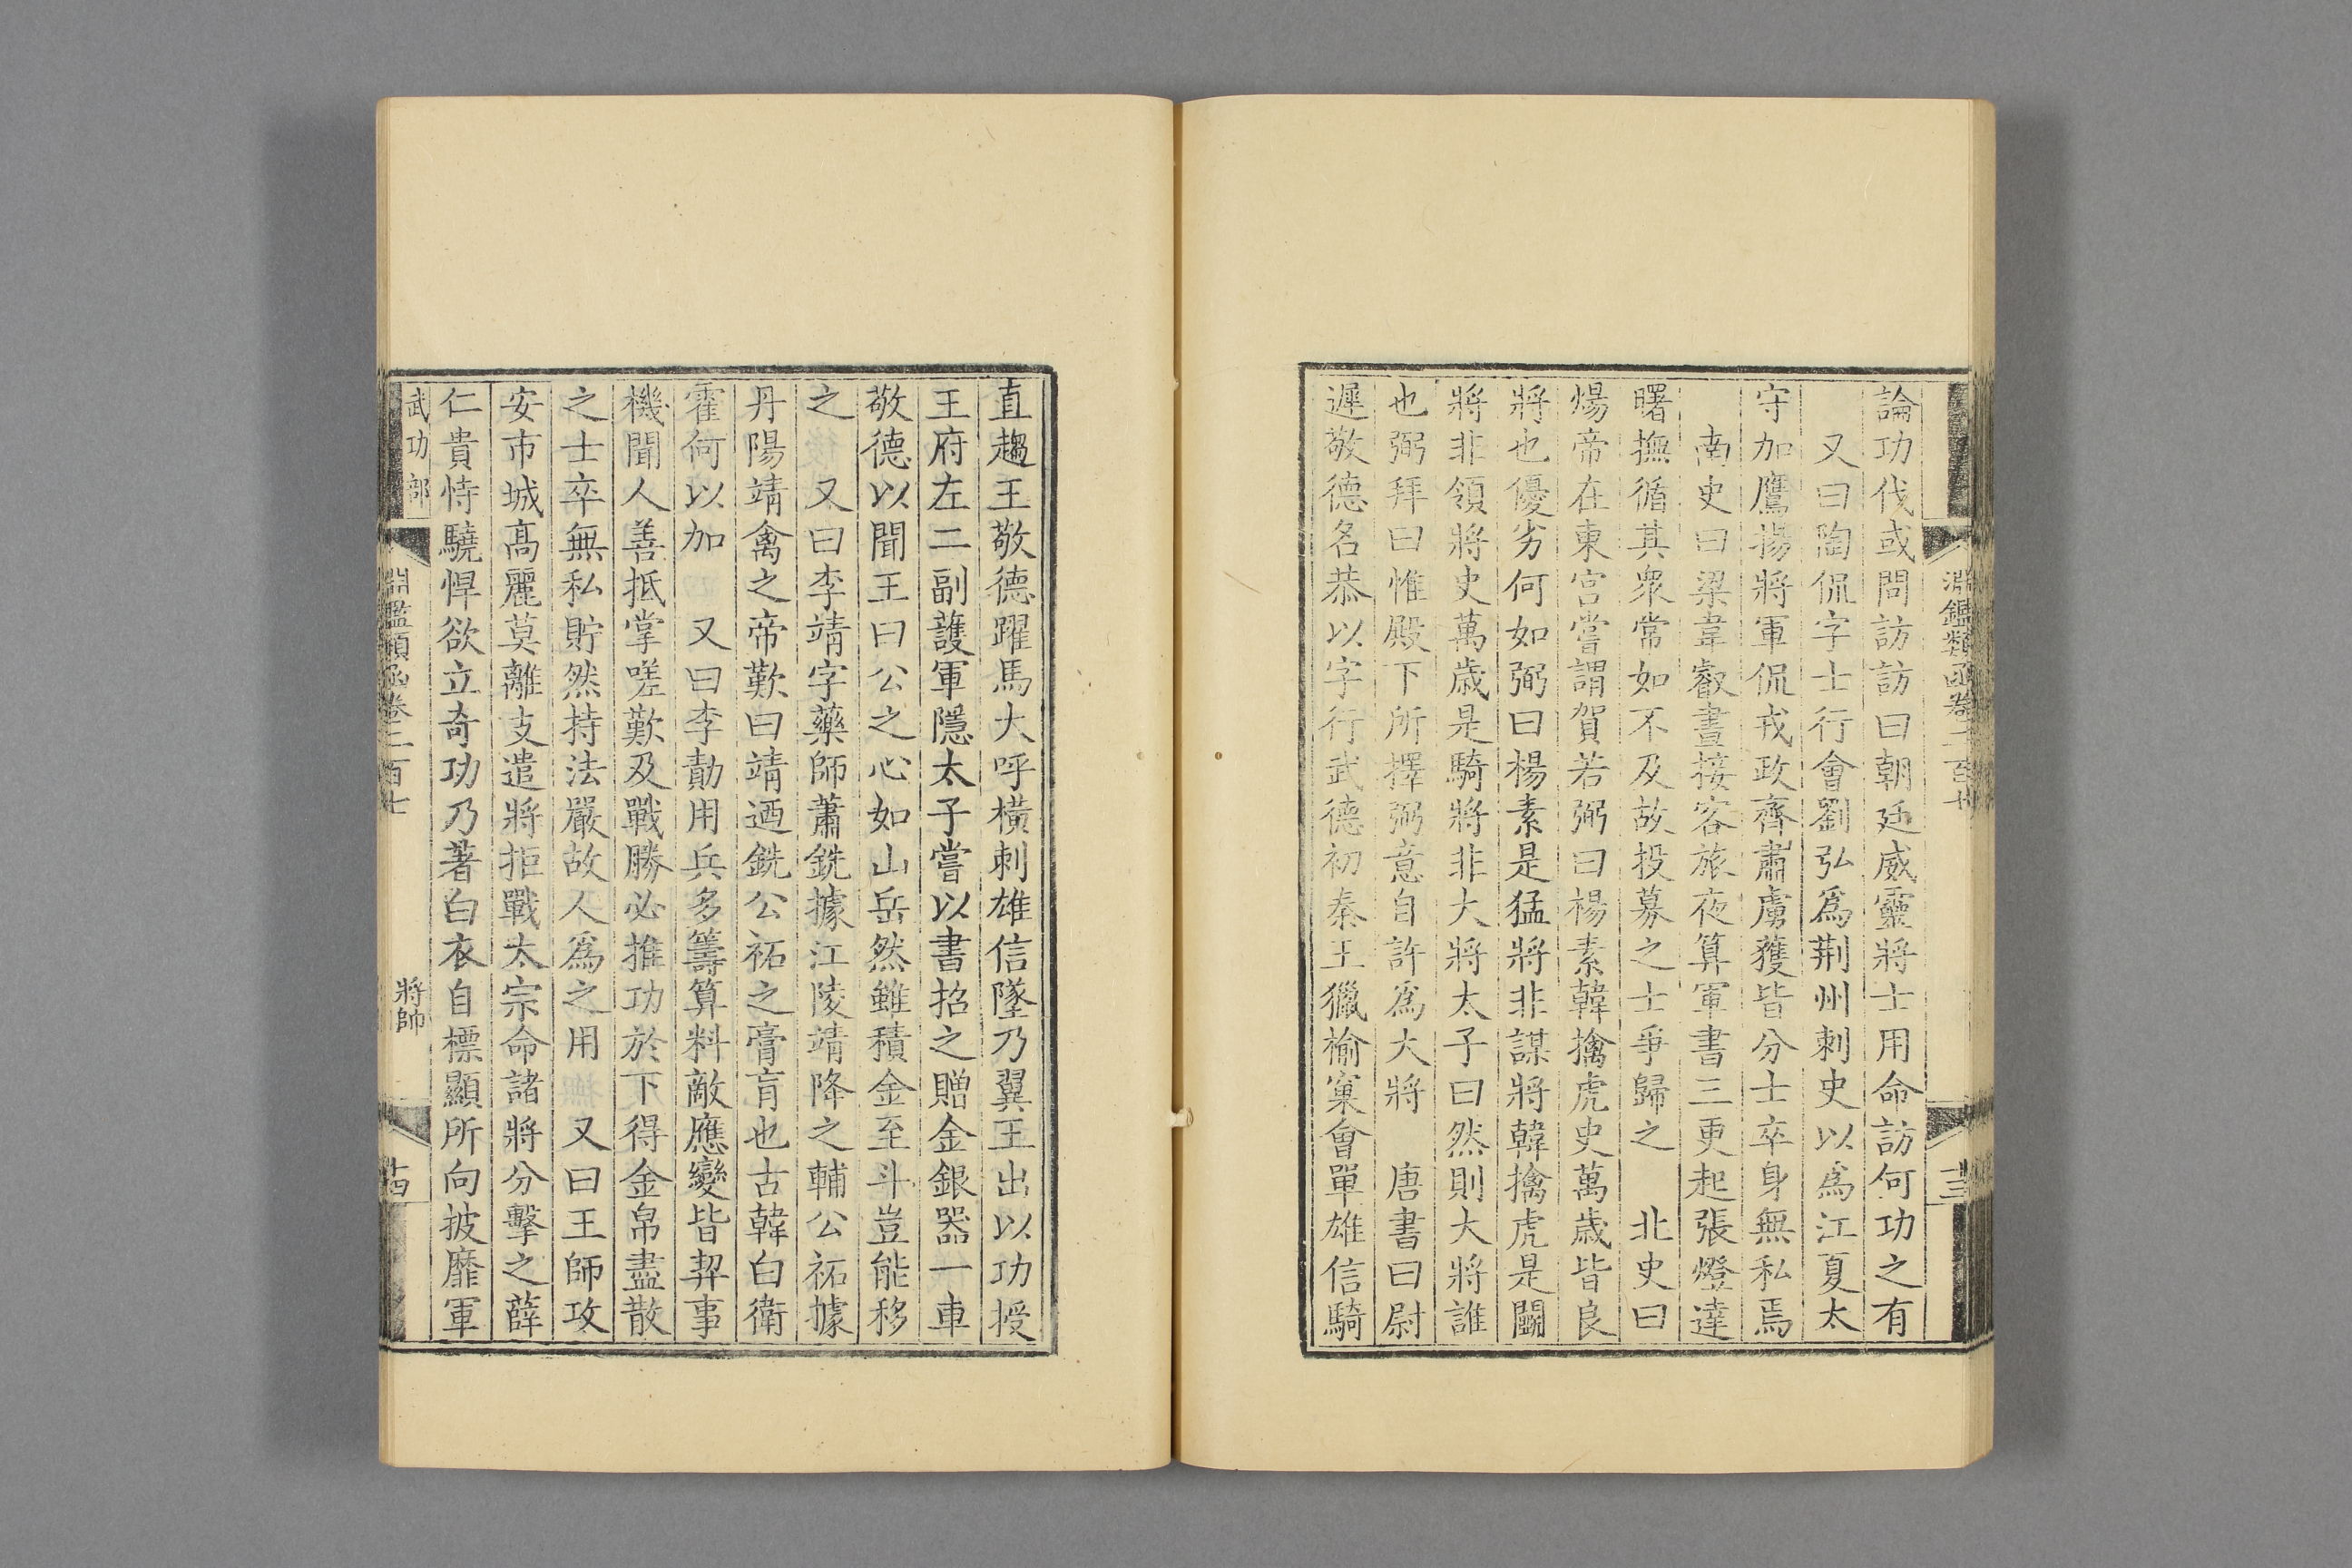 淵鑑類函卷二百七
十三
論功伐或問訪訪曰朝廷威靈將士用命訪何功之有
又曰陶侃字士行會劉弘爲荆州刺史以爲江夏太
守加鷹揚將軍侃戎政齊肅虜獲皆分士卒身無私焉
南史曰梁韋叡晝接客旅夜算軍書三更起張燈達
曙撫循其衆常如不及故投募之士爭歸之 北史曰
煬帝在東宮嘗謂賀若弼曰楊素韓擒虎史萬歲皆良
將也優劣何如弼曰楊素是猛將非謀將韓擒虎是鬬
將非領將史萬歲是騎將非大將太子曰然則大將誰
也弼拜曰惟殿下所擇弼意自許爲大將 唐書曰尉
遲敬德名恭以字行武德初秦王獵榆窠會單雄信騎
直趨王敬德躍馬大呼橫刺雄信墜乃翼王出以功授
王府左二副護軍隱太子嘗以書招之贈金銀器一車
敬德以聞王曰公之心如山岳然雖積金至斗豈能移
之 又曰李靖字藥師蕭銑據江陵靖降之輔公祏據
丹陽靖禽之帝歎曰靖迺銑公祏之膏肓也古韓白衛
霍何以加 又曰李勣用兵多籌算料敵應變皆契事
機聞人善抵掌嗟歎及戰勝必推功於下得金帛盡散
之士卒無私貯然持法嚴故人爲之用 又曰王師攻
安市城高麗莫離支遣將拒戰太宗命諸將分擊之薛
仁貴恃驍悍欲立奇功乃著白衣自標顯所向披靡軍
武功部
淵鑑類函卷二百七
將帥
十四